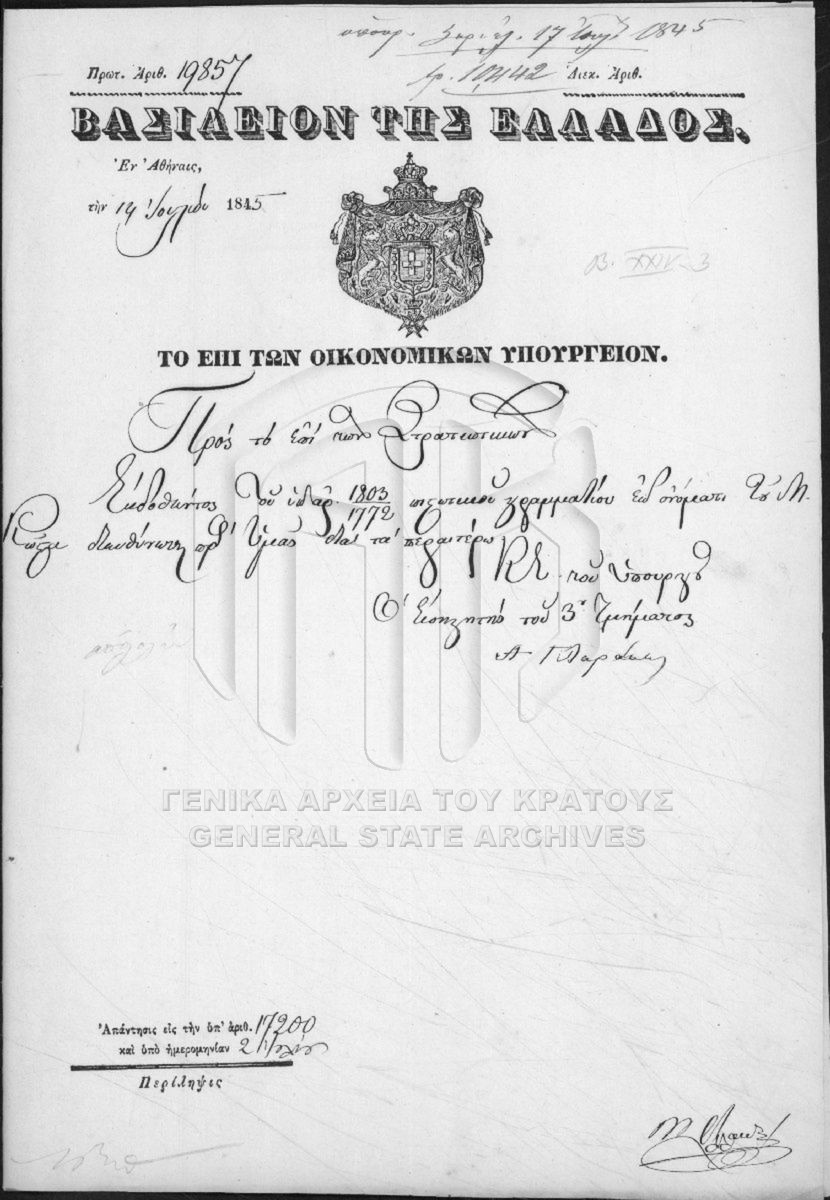 1845
Πρωτ. Ἀριθ. 19857
10442 Διεκ. Ἀριθ.
ΒΑΣΙΛΕΙΟΝ ΤΗΣ ΕΛΛΑΔΟΣ.
Ἐν Ἀθήναις,
τὴν 14 Ἰουλίου 1845
ΤΟ ΕΠΙ ΤΩΝ ΟΙΚΟΝΟΜΙΚΩΝ ΥΠΟΥΡΓΕΙΟΝ.
Πρὸς τὸ ἐπὶ τῶν Στρατιωτικῶν
Ἐκδοθέντος τοῦ ὑπ' ἀρ. 1803/1772 πιστωτικοῦ γραμματίου ἐπ' ὀνόματι τοῦ Μ.
διευθύνεται πρὸς Ὑμᾶς διὰ τὰ περαιτέρω
τοῦ Ὑπουργοῦ
Ὁ Εἰσηγητὴς τοῦ 3ου Τμήματος
Α
ΓΕΝΙΚΑ ΑΡΧΕΙΑ ΤΟΥ ΚΡΑΤΟΥΣ
GENERAL STATE ARCHIVES
Ἀπάντησις εἰς τὴν ὑπ' ἀριθ. 17200
καὶ ὑπὸ ἡμερομηνίαν 2
Περίληψις